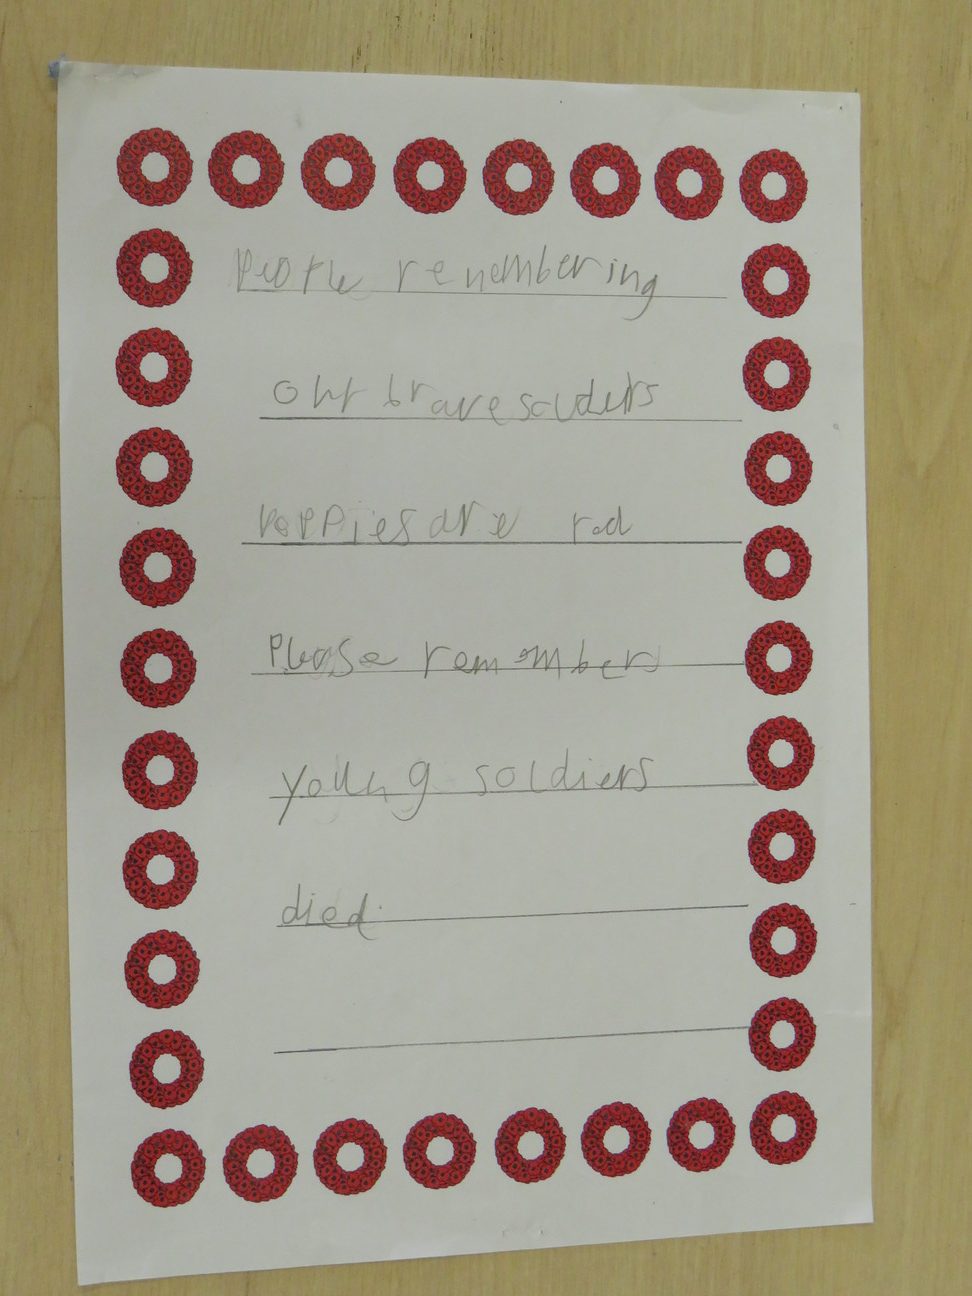 People remembering
our brave soulders
poppies are red
Please remember
young soldiers
died.